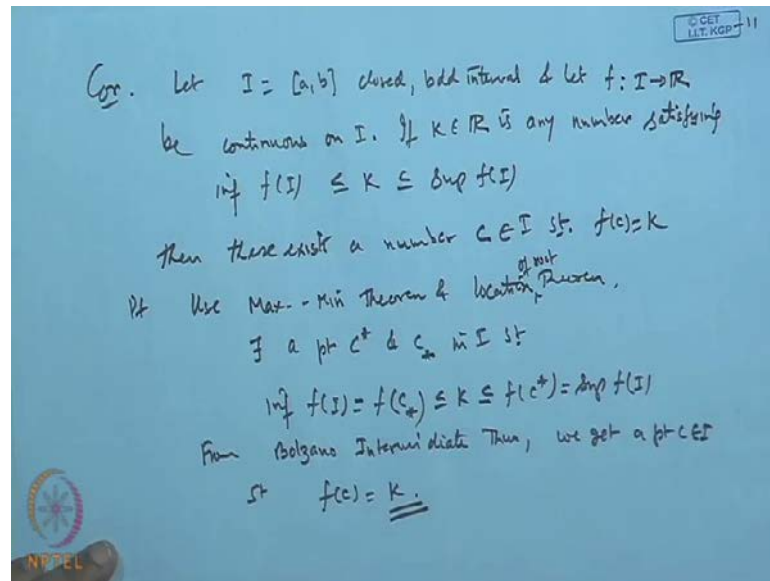 © CET
I.I.T. KGP
11
Cor. Let I = [a,b] closed, bdd interval & let f: I→R
be continuous on I. If K ∈ R is any number satisfying
inf f(I) ≤ K ≤ Sup f(I)
then there exists a number C ∈ I st. f(c)=K
Pf Use Max.-Min Theorem & location of root Theorem.
∃ a pt c* & c_* in I st
inf f(I) = f(c_*) ≤ K ≤ f(c*) = Sup f(I)
From Bolzano Intermediate Thm, we get a pt c∈I
st f(c) = K.
NPTEL